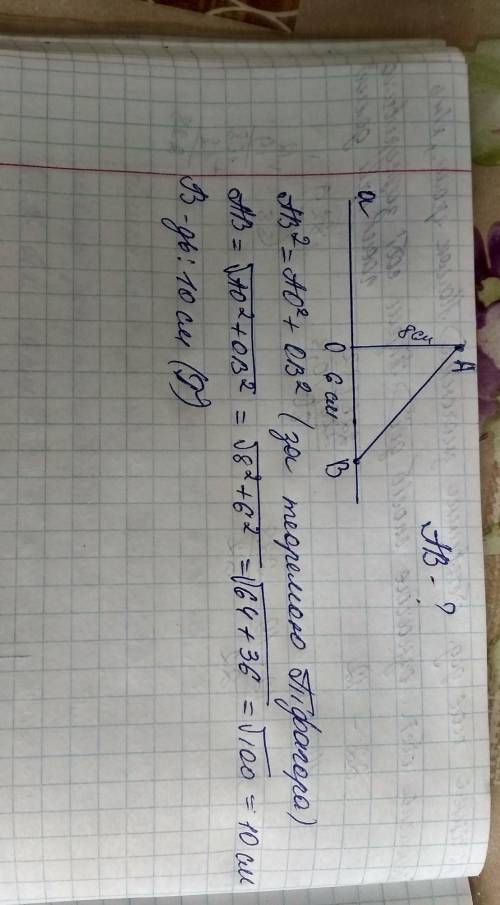 AB - ?
A
8 см
a
O
6 см
B
AB² = AO² + OB² (за теоремою Піфагора)
AB = √AO² + OB² = √8² + 6² = √64 + 36 = √100 = 10 см
В-дь: 10 см (Г)